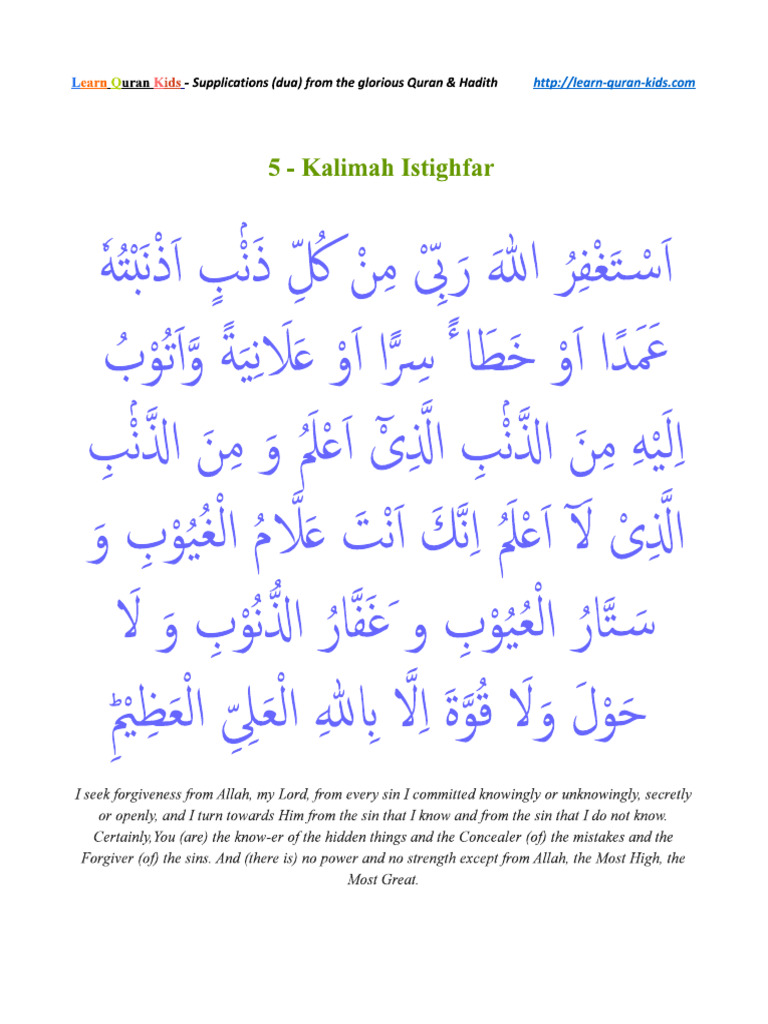 Learn Quran Kids - Supplications (dua) from the glorious Quran & Hadith http://learn-quran-kids.com
5 - Kalimah Istighfar
اَسْتَغْفِرُ اللهَ رَبِّىْ مِنْ كُلِّ ذَنْۢبٍ اَذْنَبْتُهٗ
عَمَدًا اَوْ خَطَاءً سِرًّا اَوْ عَلَانِيَةً وَّاَتُوْبُ
اِلَيْهِ مِنَ الذَّنْۢبِ الَّذِىْٓ اَعْلَمُ وَ مِنَ الذَّنْۢبِ
الَّذِىْ لَآ اَعْلَمُ اِنَّكَ اَنْتَ عَلَّامُ الْغُيُوْبِ وَ
سَتَّارُ الْعُيُوْبِ و َغَفَّارُ الذُّنُوْبِ وَ لَا
حَوْلَ وَلَا قُوَّةَ اِلَّا بِاللهِ الْعَلِىِّ الْعَظِيْمِؕ
I seek forgiveness from Allah, my Lord, from every sin I committed knowingly or unknowingly, secretly
or openly, and I turn towards Him from the sin that I know and from the sin that I do not know.
Certainly,You (are) the know-er of the hidden things and the Concealer (of) the mistakes and the
Forgiver (of) the sins. And (there is) no power and no strength except from Allah, the Most High, the
Most Great.